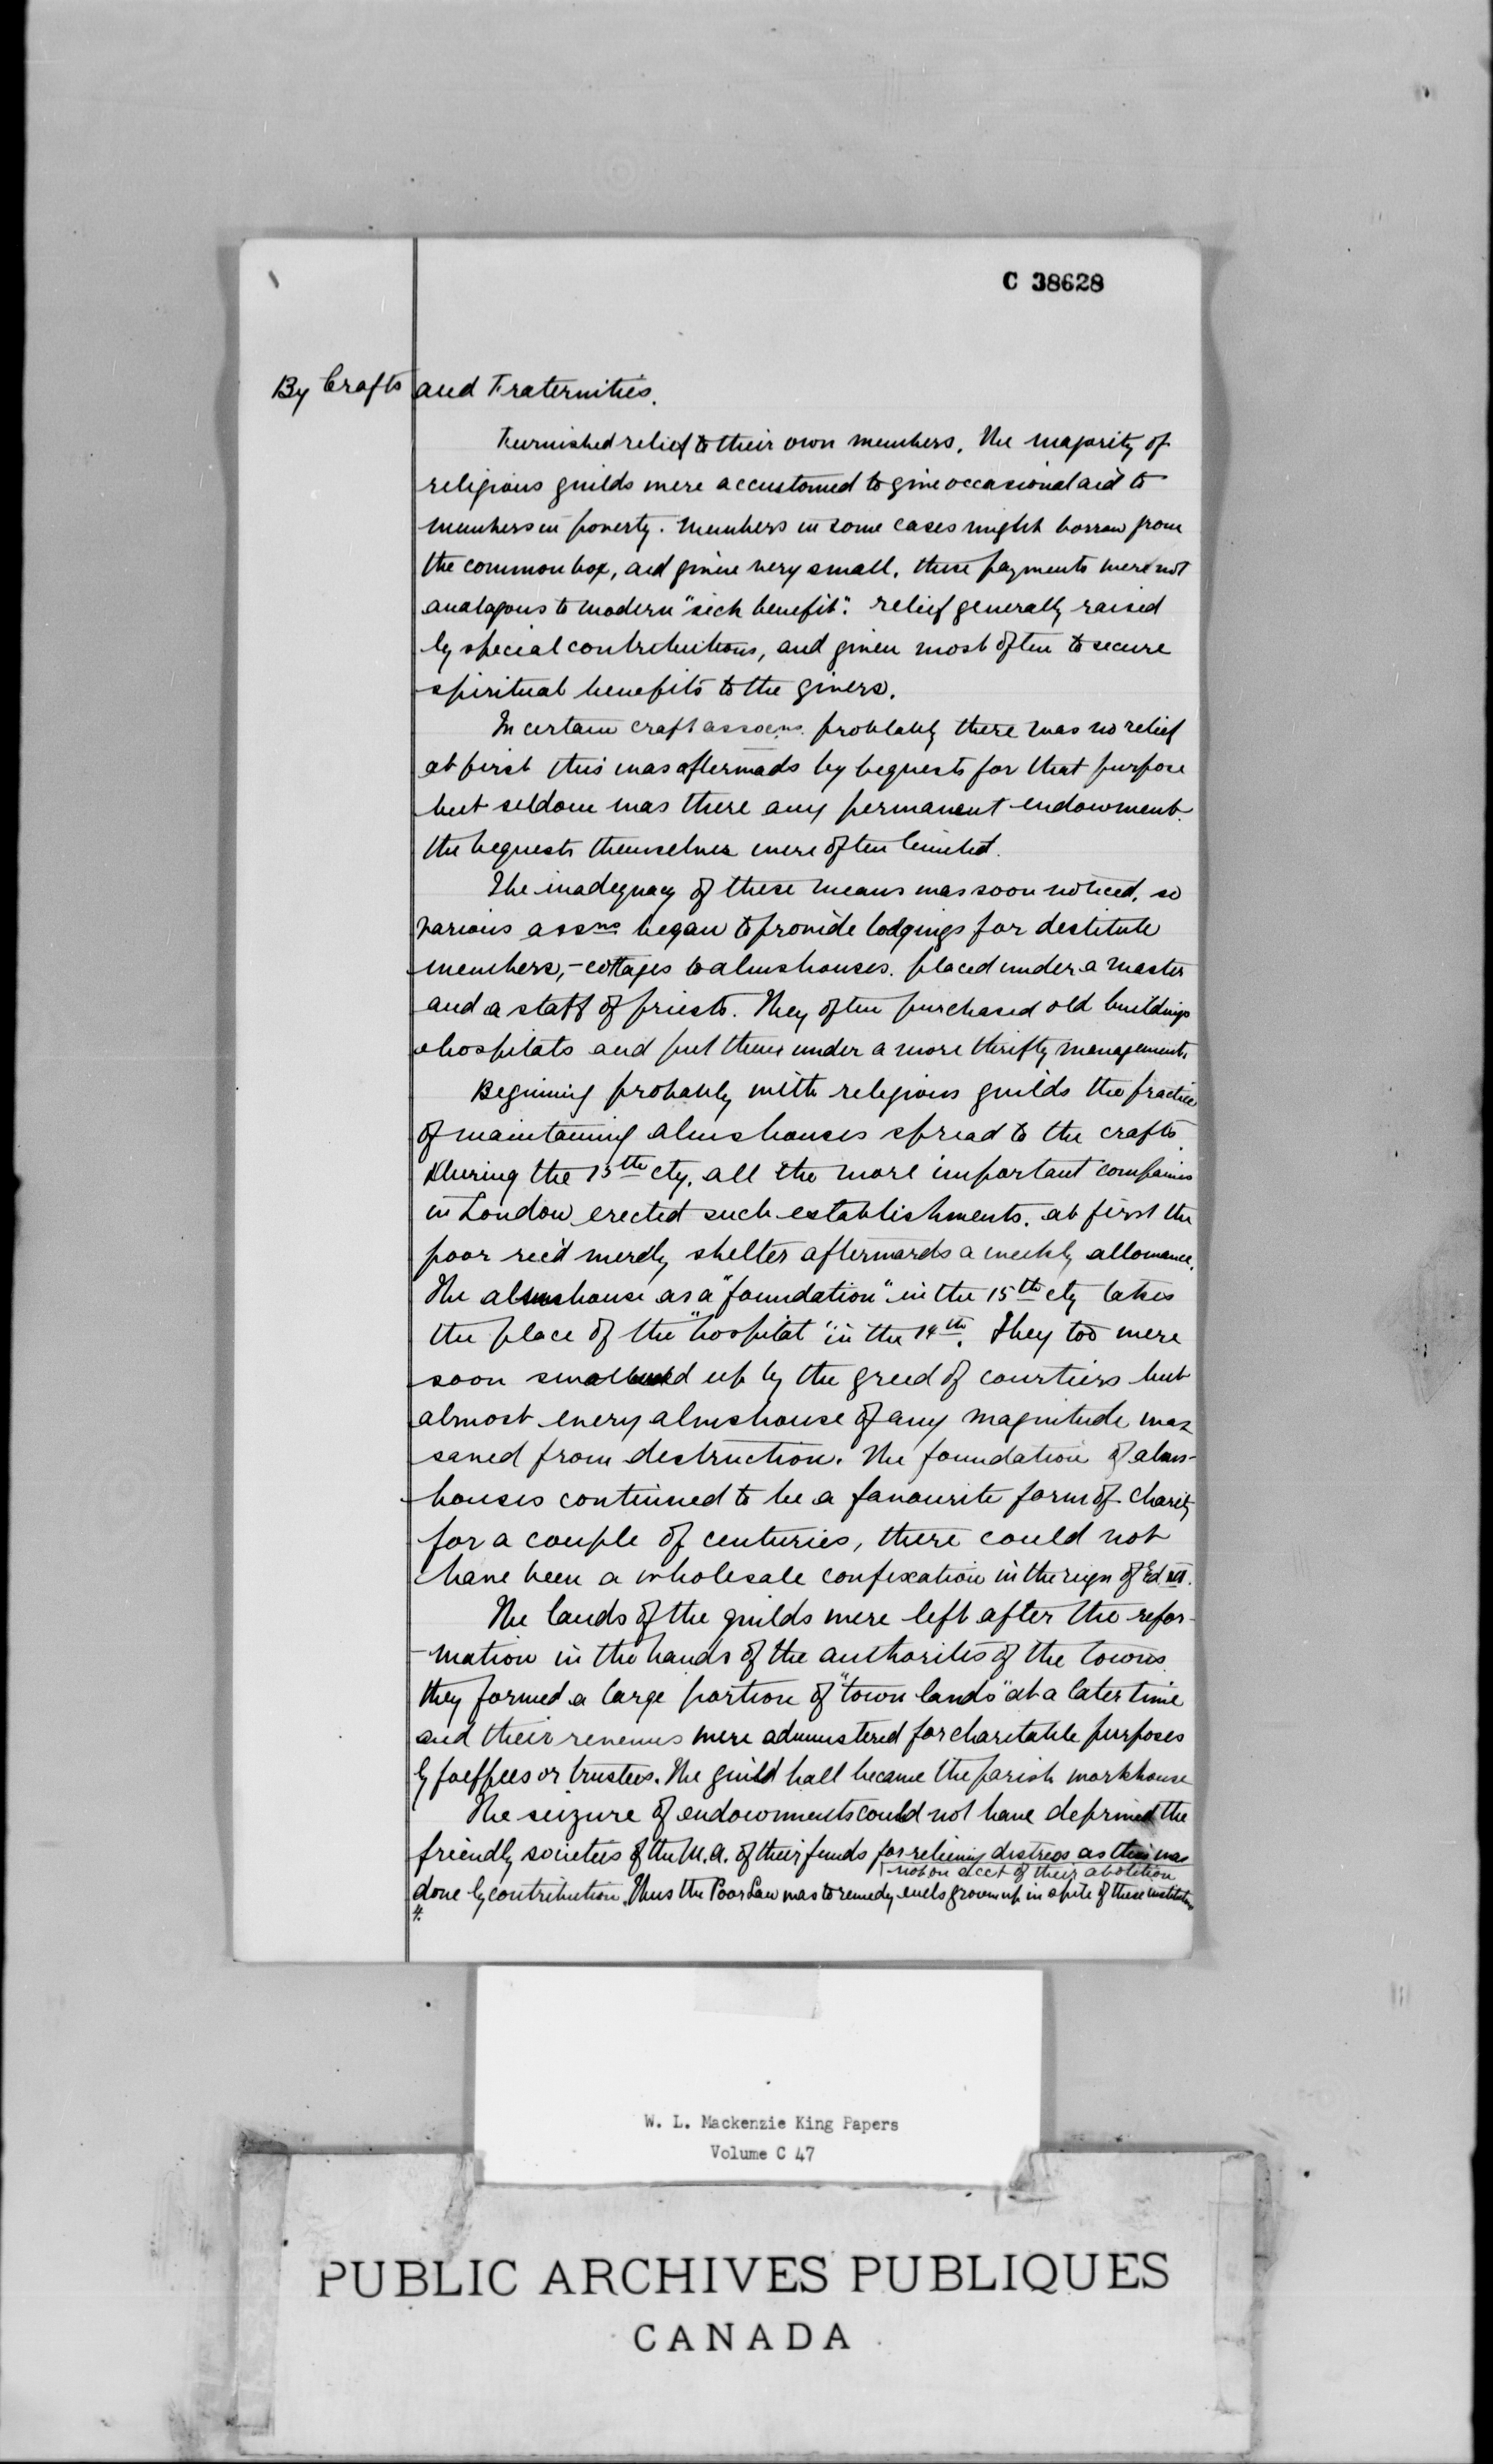 C 38628
By Crafts and Fraternities.
Furnished relief to their own members. The majority of
religious guilds were accustomed to give occasional aid to
members in poverty. Members in some cases might borrow from
the common box, aid given very small. these payments were not
analagous to modern "sick benefit". relief generally raised
by special contributions, and given most often to secure
spiritual benefits to the givers.
In certain craft assocns. probably there was no relief
at first this was afterwards by bequests for that purpose
but seldom was there any permanent endowment.
the bequests themselves were often limited.
The inadequacy of these means was soon noticed, so
various assns began to provide lodgings for destitute
members, - cottages & almshouses. placed under a master
and a staff of priests. They often purchased old buildings
& hospitals and put them under a more thrifty management.
Begining probably with religious guilds the practice
of maintaining almshouses spread to the crafts.
During the 15th cty. all the more important companies
in London erected such establishments. at first the
poor rec'd merely shelter afterwards a weekly allowance.
The almshouse as a "foundation" in the 15th cty takes
the place of the "hospital" in the 14th. They too were
soon swallowed up by the greed of courtiers but
almost every almshouse of any magnitude was
saved from destruction. The foundation of alms-
houses continued to be a favourite form of charity
for a couple of centuries, there could not
have been a wholesale confixation in the reign of Ed VI.
The lands of the guilds were left after the refor-
-mation in the hands of the authorities of the towns.
they formed a large portion of "town lands" at a later time
and their revenues were administered for charitable purposes
by foeffees or trustees. The guild hall became the parish workhouse
The seizure of endowments could not have deprived the
friendly societies of the M.A. of their funds for relieving distress as this was
not on acct of their abolition
done by contribution. Thus the Poor Law was to remedy evils grown up in spite of these institutions
4.
W. L. Mackenzie King Papers
Volume C 47
PUBLIC ARCHIVES PUBLIQUES
CANADA